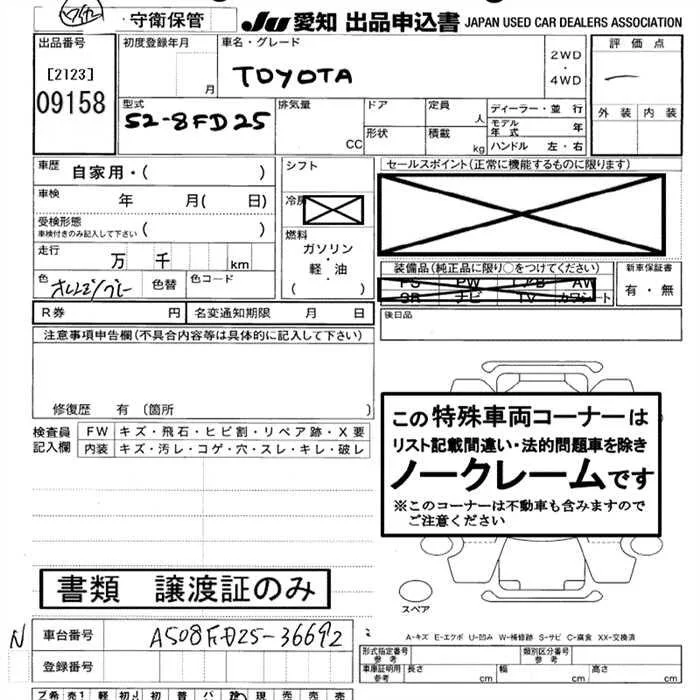 守衛保管 JU 愛知 出品申込書 JAPAN USED CAR DEALERS ASSOCIATION
出品番号
[2123]
09158
初度登録年月
月
車名・グレード
TOYOTA
2WD
・
4WD
評価点
外装 内装
型式
52-8FD25
排気量
CC
ドア
形状
定員
人
積載
kg
ディーラー・並行
モデル年式 年
ハンドル 左・右
車歴 自家用・( )
車検 年 月( 日)
受検形態
車検付きのみ記入して下さい ( )
走行 万 千 km
色
色替
色コード
シフト
冷房
燃料
ガソリン
・
軽・油
( )
セールスポイント(正常に機能するものに限ります)
装備品(純正品に限り○をつけてください)
PS PW エアB AW
SR ナビ TV カワシート
新車保証書
有・無
後日品
R券 円 名変通知期限 月 日
注意事項申告欄(不具合内容等は具体的に記入して下さい)
修復歴 有(箇所 )
検査員記入欄
FW キズ・飛石・ヒビ割・リペア跡・X要
内装 キズ・汚レ・コゲ・穴・スレ・キレ・破レ
この特殊車両コーナーは
リスト記載間違い・法的問題車を除き
ノークレームです
※このコーナーは不動車も含みますので
ご注意ください
書類 譲渡証のみ
スペア
N 車台番号 A508FD25-36692
登録番号
A-キズ E-エクボ U-凹み W-補修跡 S-サビ C-腐食 XX-交換済
形式指定番号
参考
類別区分番号
参考
車庫証明用
参考
長さ cm 幅 cm 高さ cm